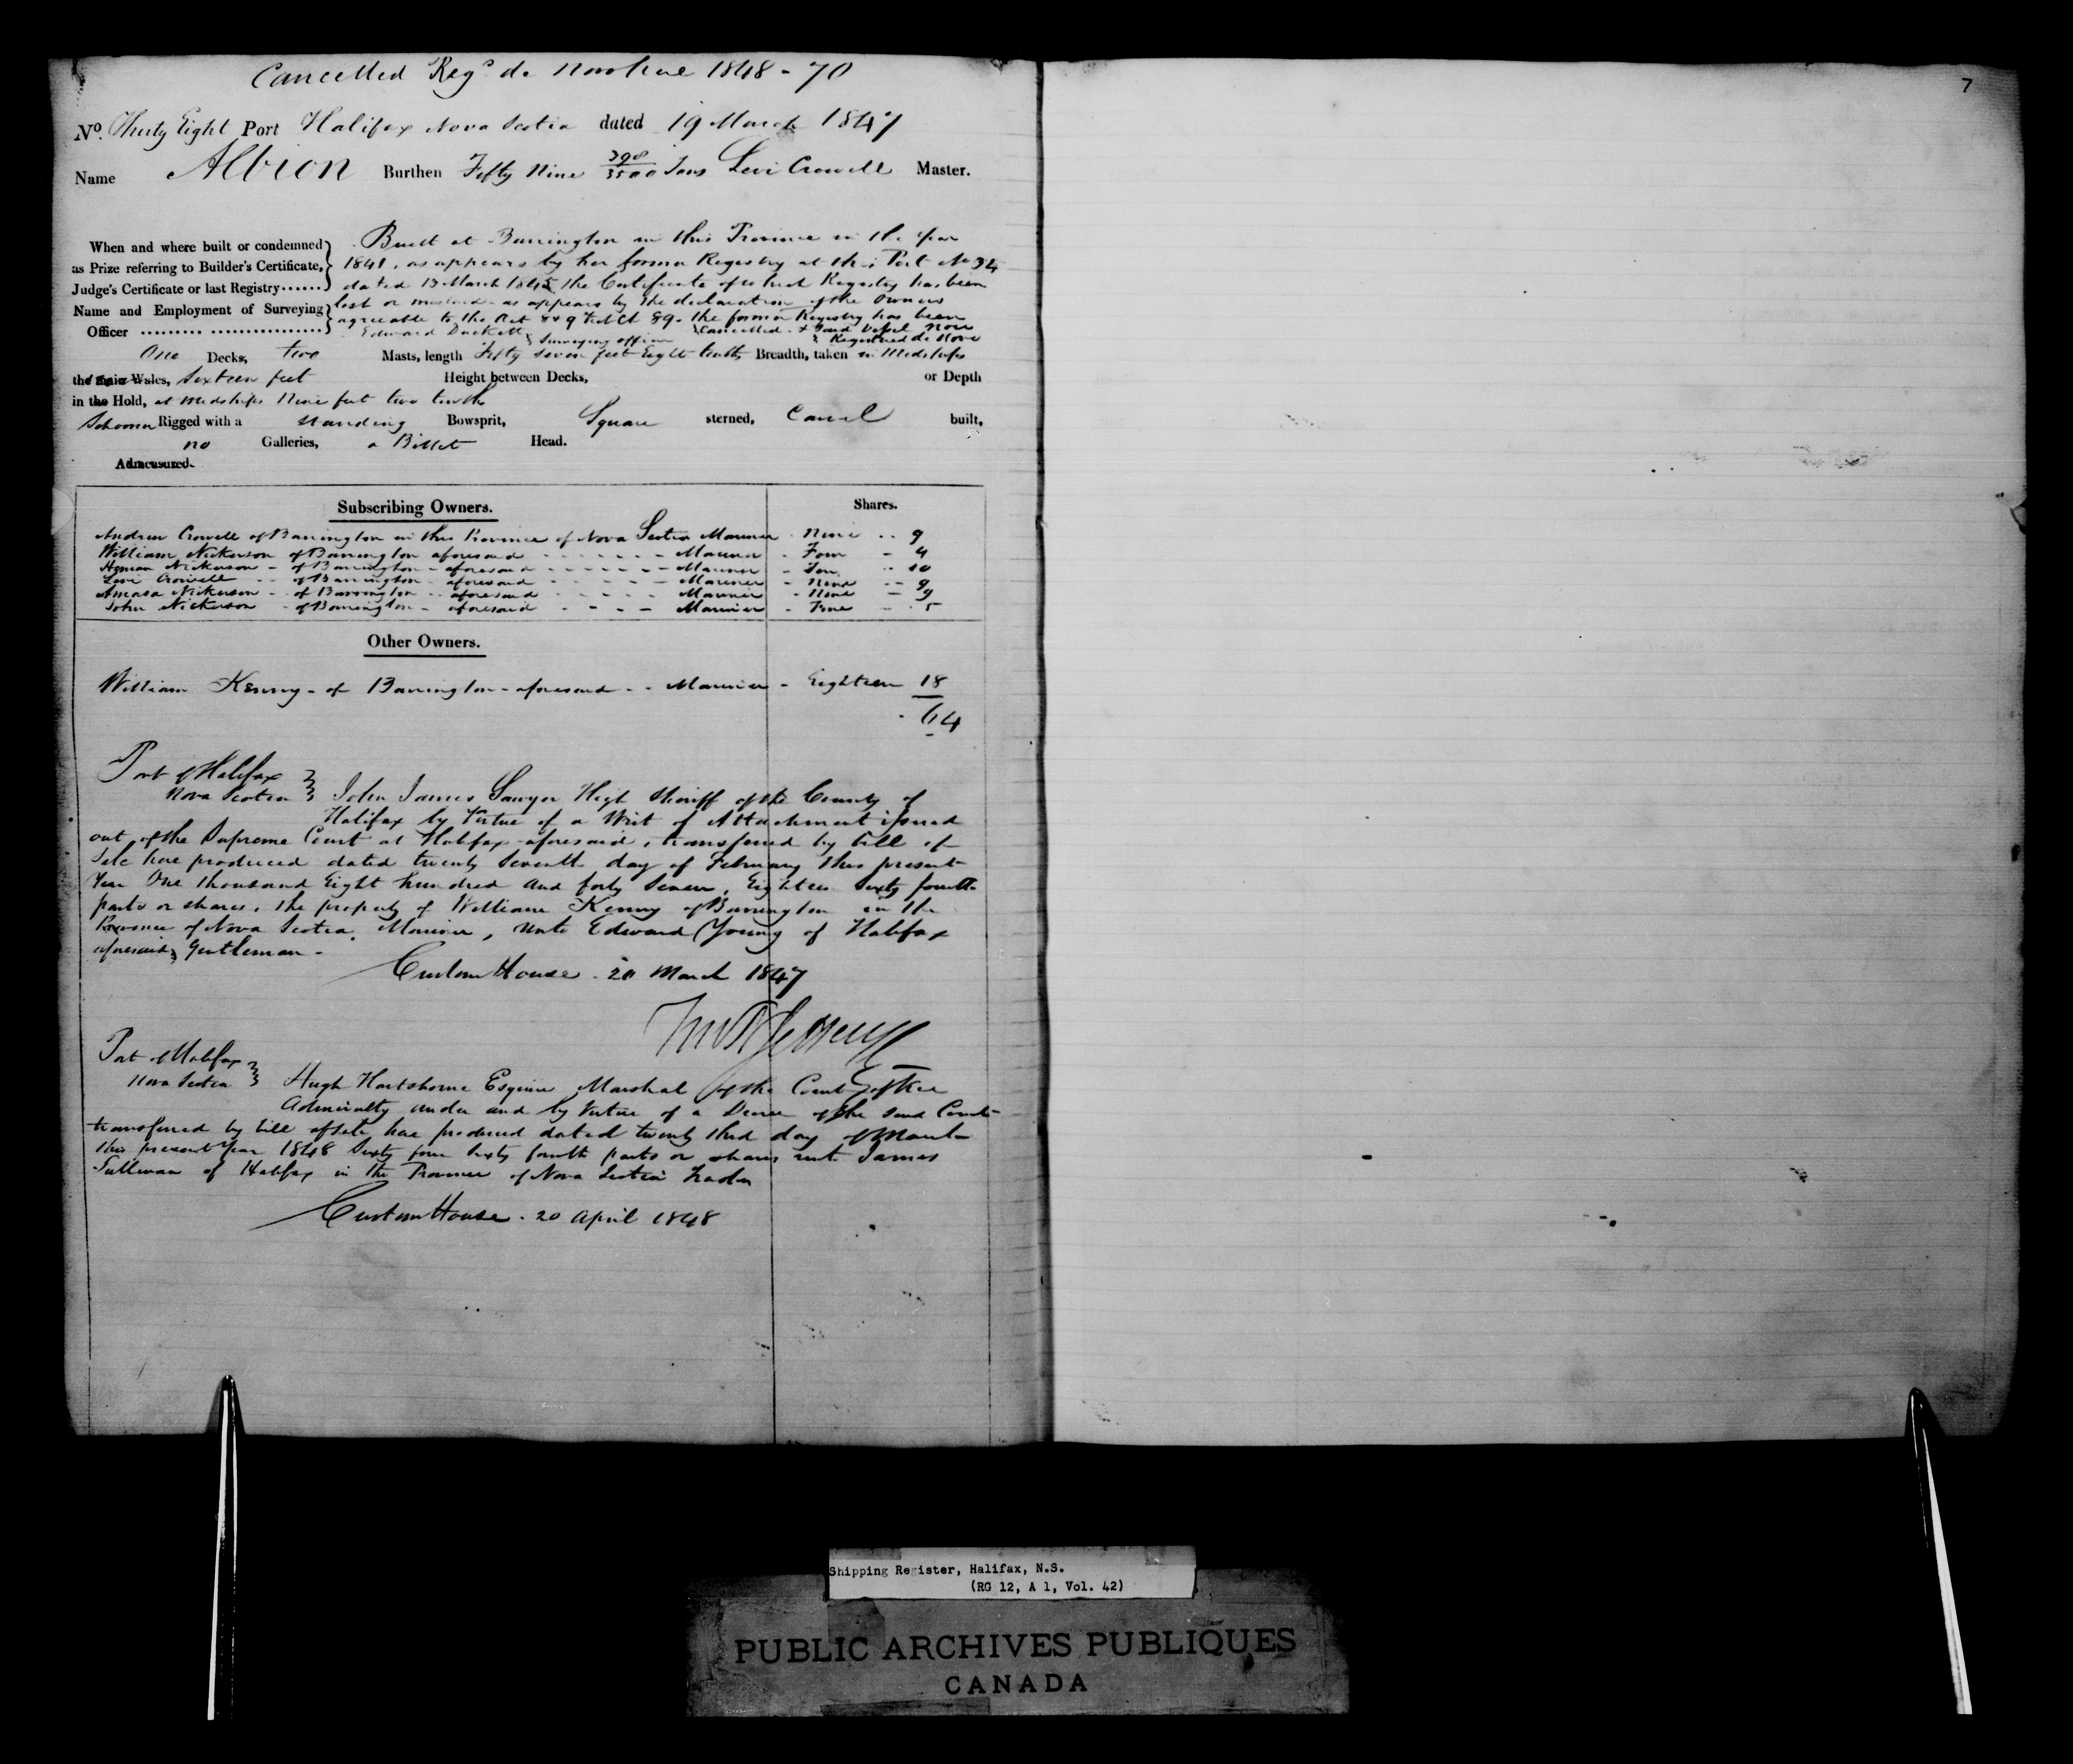 Cancelled Reg^d de Novo here 1848 - 70
7
No. Thirty Eight Port Halifax Nova Scotia dated 19 March 1847
Name Albion Burthen Fifty Nine 398/3500 Tons Levi Crowell Master.
When and where built or condemned as Prize referring to Builder's Certificate, Judge's Certificate or last Registry
Built at Barrington in this Province in the Year
1841, as appears by her former Registry at this Port No 34
dated 13 March 1845 the Certificate of which Registry has been
lost or mislaid - as appears by the declaration of the Owners
agreeable to the Act 8 & 9 Vict Ch 89 - the former Registry has been
Cancelled & said Vessel now
Registered de Novo
Name and Employment of Surveying Officer
Edward Duckett Surveying officer
One Decks, two Masts, length Fifty seven feet Eight tenths Breadth, taken in Midships
the main Wales, Sixteen feet Height between Decks, or Depth
in the Hold, at midships Nine feet two tenths
Schooner Rigged with a standing Bowsprit, Square sterned, Carvel built,
no Galleries, a Billet Head.
Admeasured.
Subscribing Owners. Shares.
Andrew Crowell of Barrington in this Province of Nova Scotia Mariner - Nine - 9
William Nickerson of Barrington aforesaid - Mariner - Four - 4
Heman Nickerson - of Barrington - aforesaid - Mariner - Ten - 10
Levi Crowell - of Barrington - aforesaid - Mariner - Nine - 9
Amasa Nickerson - of Barrington - aforesaid - Mariner - Nine - 9
John Nickerson - of Barrington - aforesaid - Mariner - Five - 5
Other Owners.
William Kenny - of Barrington - aforesaid - Mariner - Eighteen 18
64
Port of Halifax
Nova Scotia } John James Sawyer High Sheriff of the County of
Halifax by Virtue of a Writ of Attachment issued
out of the Supreme Court at Halifax aforesaid, transferred by bill of
Sale here produced dated twenty Seventh day of February this present
Year One thousand Eight hundred and forty Seven, Eighteen Sixty fourth
parts or shares, the property of William Kenny of Barrington in the
Province of Nova Scotia, Mariner, Unto Edward Young of Halifax
aforesaid, Gentleman -
Custom House - 20 March 1847
Port of Halifax
Nova Scotia } Hugh Hartshorne Esquire Marshal of the Court of Vice
Admiralty under and by Virtue of a Decree of the said Court
transferred by bill of sale here produced dated twenty third day of March
this present Year 1848 Sixty four Sixty fourth parts or shares unto James
Sullivan of Halifax in the Province of Nova Scotia Trader
Custom House - 20 April 1848
Shipping Register, Halifax, N.S.
(RG 12, A 1, Vol. 42)
PUBLIC ARCHIVES PUBLIQUES
CANADA